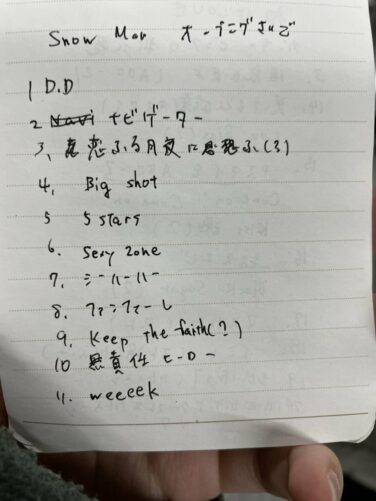 Snow Man
1 D.D
2 ナビゲーター
3、恋ふる月夜に君想ふ
4, Big shot
5 5 stars
6. Sexy Zone
7.
8. ファンファーレ
9. Keep the faith(?)
10 無責任ヒーロー
11. weeeek